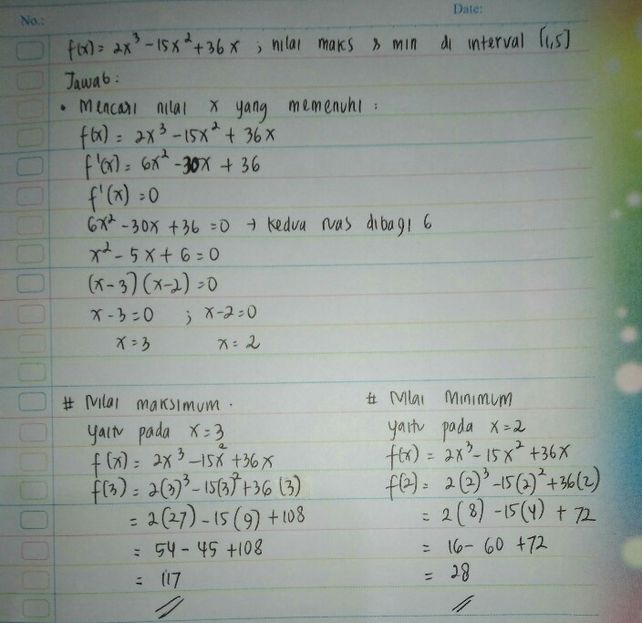 No.:
Date:
f(x) = 2x³ - 15x² + 36x ; nilai maks & min di interval [1,5]
Jawab :
• Mencari nilai x yang memenuhi :
f(x) = 2x³ - 15x² + 36x
f'(x) = 6x² - 30x + 36
f'(x) = 0
6x² - 30x + 36 = 0 → kedua ruas dibagi 6
x² - 5x + 6 = 0
(x-3) (x-2) = 0
x - 3 = 0 ; x - 2 = 0
x = 3 x = 2
# Nilai maksimum .
yaitu pada x = 3
f(x) = 2x³ - 15x² + 36x
f(3) = 2(3)³ - 15(3)² + 36 (3)
= 2(27) - 15(9) + 108
= 54 - 45 + 108
= 117
//
# Nilai Minimum
yaitu pada x = 2
f(x) = 2x³ - 15x² + 36x
f(2) = 2(2)³ - 15(2)² + 36(2)
= 2(8) - 15(4) + 72
= 16 - 60 + 72
= 28
//